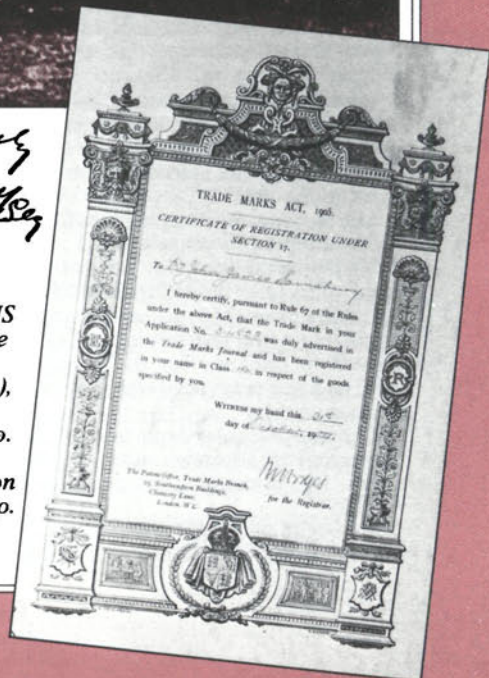 IS
e
),
o.
on
o.
TRADE MARKS ACT, 1905.
CERTIFICATE OF REGISTRATION UNDER
SECTION 17.
To Mr John James Sainsbury
I hereby certify, pursuant to Rule 67 of the Rules
under the above Act, that the Trade Mark in your
Application No. was duly advertised in
the Trade Marks Journal and has been registered
in your name in Class in respect of the goods
specified by you.
WITNESS my hand this
day of October, 19
The Patent Office, Trade Marks Branch,
25, Southampton Buildings,
Chancery Lane,
London, W.C.
for the Registrar.
R